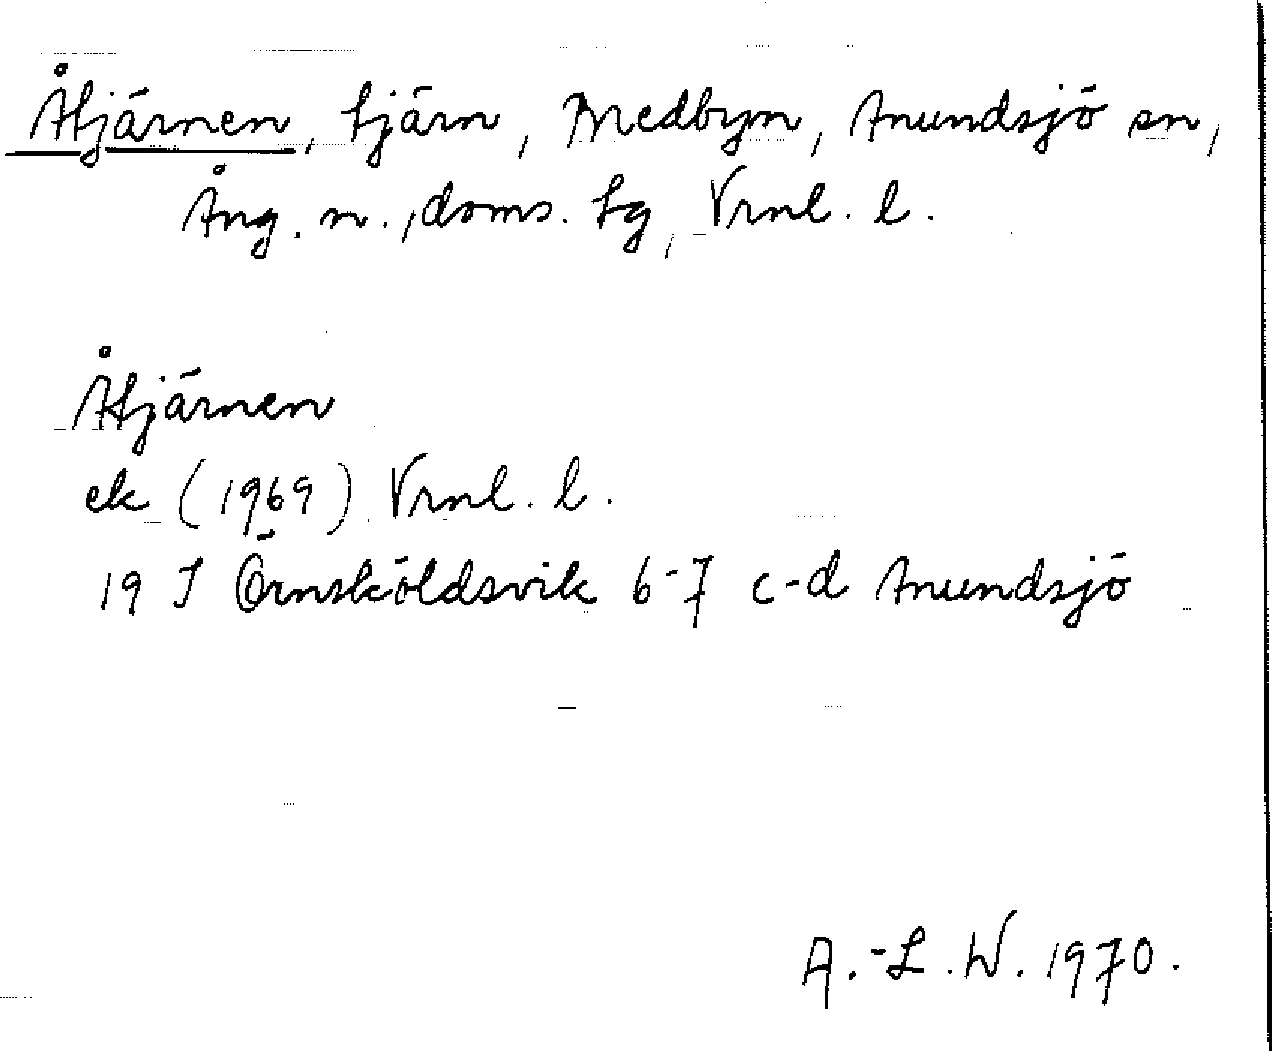 Åtjärnen, tjärn, Medbyn, Anundsjö sn,
Ång. n., doms. tg, Vrnl. l.
Åtjärnen
ek (1969) Vrnl. l.
19 J Örnsköldsvik 6-7 c-d Anundsjö
A.-L. W. 1970.